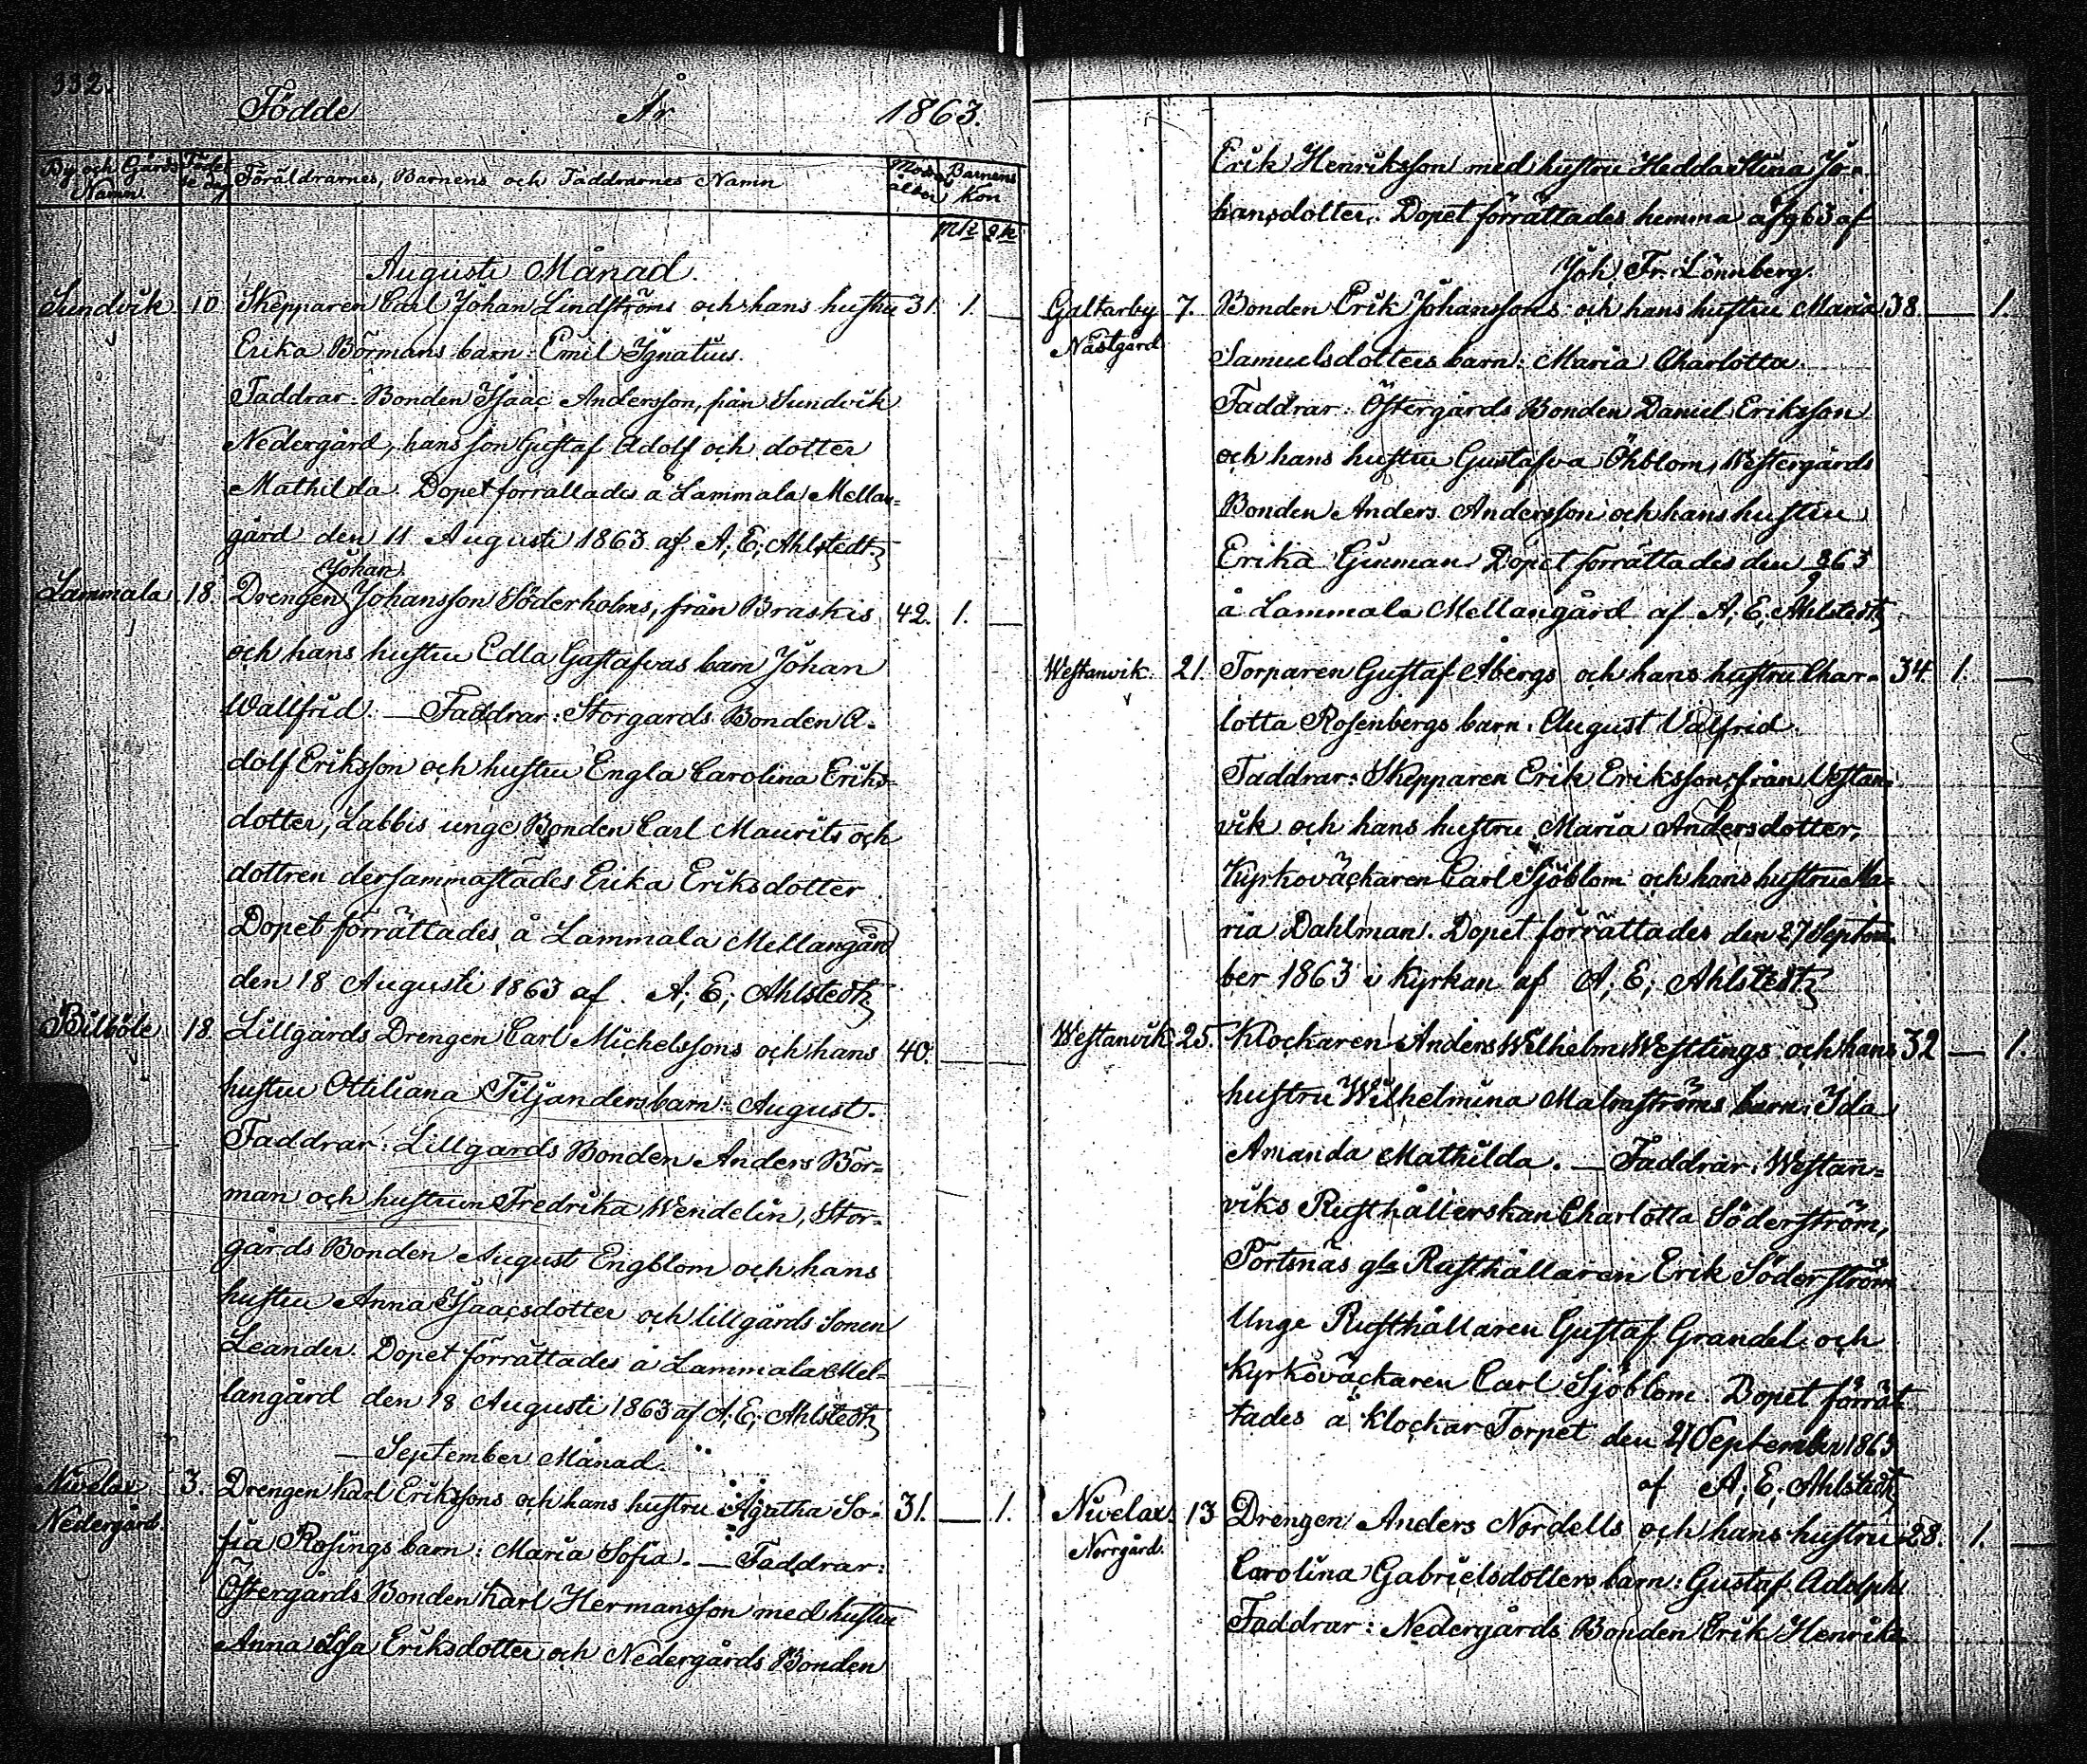 332.
Födde År 1863.
By och Gårds Namn. Födel se dag Föräldrarnes, Barnens och Faddrarnes Namn Moders ålder Barnens Kön
Mk Qk
Augusti Månad.
Sundvik 10 Skepparen Carl Johan Lindströms och hans hustru 31. 1. —
Erika Bormans barn: Emil Ignatius.
Faddrar: Bonden Isaac Andersson, från Sundvik
Nedergård, hans son Gustaf Adolf och dotter
Mathilda. Dopet förrättades å Lammala Mellan=
gård den 11 Augusti 1863 af A; E; Ahlstedt.
Johan
Lammala 18. Drengen Johansson Söderholms, från Braskis 42. 1. —
och hans hustru Edla Gustafvas barn Johan
Wallfrid. — Faddrar: Storgårds Bonden A=
dolf Eriksson och hustru Engla Carolina Eriks=
dotter, Labbis unge Bonden Carl Maurits och
dottren dersammastädes Erika Eriksdotter
Dopet förrättades å Lammala Mellangård
den 18 Augusti 1863 af A; E; Ahlstedt
Bilböle 18. Lillgårds Drengen Carl Michelssons och hans 40. —
hustru Ottiliana Tiljanders barn: August.
Faddrar: Lillgårds Bonden Anders Bor=
man och hustrun Fredrika Wendelin, Stor=
gårds Bonden August Engblom och hans
hustru Anna Isaacsdotter och lillgårds Sonen
Leander. Dopet förrättades å Lammala Mel=
langård den 18 Augusti 1863 af A; E; Ahlstedt
— September Månad.
Nivelax 3. Drengen Karl Erikssons och hans hustru Agatha So= 31. — 1.
Nedergård. fia Rosings barn: Maria Sofia. — Faddrar:
Östergårds Bonden Karl Hermansson med hustru
Anna Lisa Eriksdotter och Nedergårds Bonden
Erik Henriksson med hustru Hedda Stina Jo=
hansdotter. Dopet förrättades hemma af
Joh. Fr. Lönnberg.
Galtarby 7. Bonden Erik Johanssons och hans hustru Maria 38. — 1.
Nästgård Samuelsdotters barn: Maria Charlotta.
Faddrar: Östergårds Bonden Daniel Eriksson
och hans hustru Gustafva Öhblom, Westergårds
Bonden Anders Andersson och hans hustru
Erika Ginman. Dopet förrättades den
å Lammala Mellangård af A; E; Ahlstedt
Westanvik. 21. Torparen Gustaf Åbergs och hans hustru Char= 34. 1. —
lotta Rosenbergs barn: August Valfrid.
Faddrar: Skepparen Erik Eriksson, från Vestan=
vik och hans hustru Maria Andersdotter,
Kyrkoväckaren Carl Sjöblom och hans hustru Ma=
ria Dahlman. Dopet förrättades den 27 Septem=
ber 1863 i Kyrkan af A; E; Ahlstedt
Westanvik 25. Klockaren Anders Wilhelm Westlings och hans 32 — 1.
hustru Wilhelmina Malmströms barn: Ida
Amanda Mathilda. — Faddrar: Westan=
viks Rusthållerskan Charlotta Söderström,
Pörtsnäs gla Rusthållaren Erik Söderström
Unge Rusthållaren Gustaf Grandel och
Kyrkoväckaren Carl Sjöblom. Dopet förrät=
tades å Klockar Torpet den 27 September 1863
af A; E; Ahlstedt
Nivelax 13 Drengen Anders Nordells och hans hustru 28. 1. —
Norrgård. Carolina Gabrielsdotters barn: Gustaf Adolph
Faddrar: Nedergårds Bonden Erik Henriks=